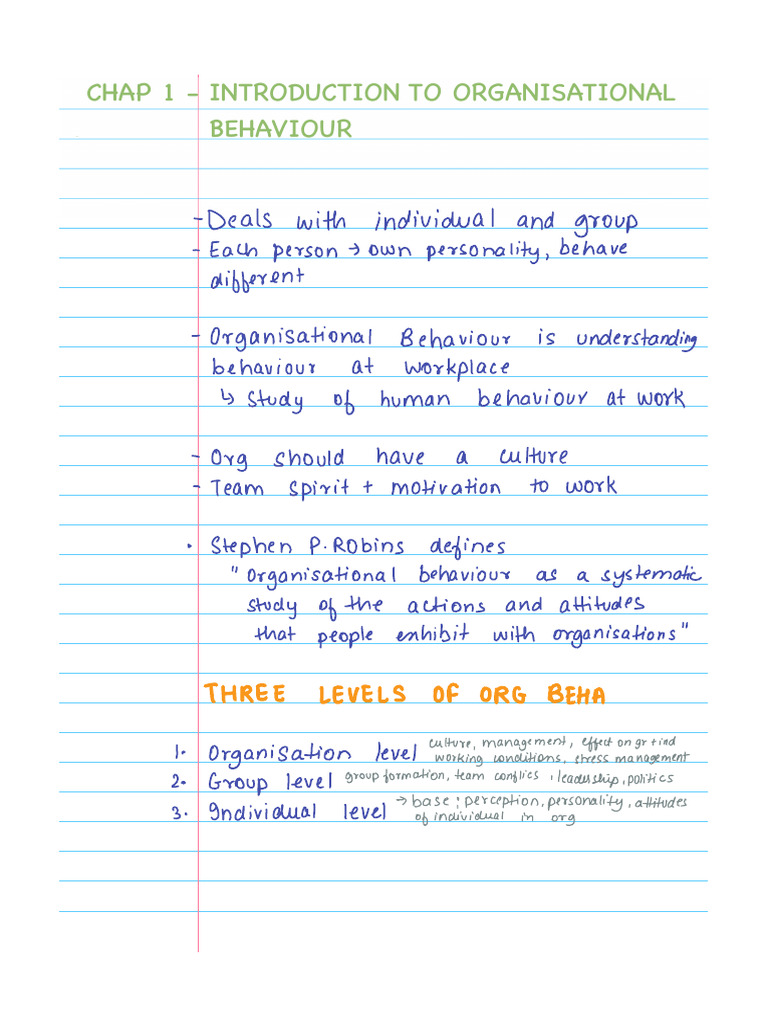 CHAP 1 - INTRODUCTION TO ORGANISATIONAL
BEHAVIOUR
- Deals with individual and group
- Each person → own personality, behave
different
- Organisational Behaviour is understanding
behaviour at workplace
↳ Study of human behaviour at work
- Org should have a culture
- Team spirit + motivation to work
• Stephen P. Robins defines
"Organisational behaviour as a systematic
study of the actions and attitudes
that people exhibit with organisations"
THREE LEVELS OF ORG BEHA
1. Organisation level culture, management, effect on gr + ind
working conditions, stress management
2. Group level group formation, team conflics, leadership, politics
3. Individual level → base; perception, personality, attitudes
of individual in org